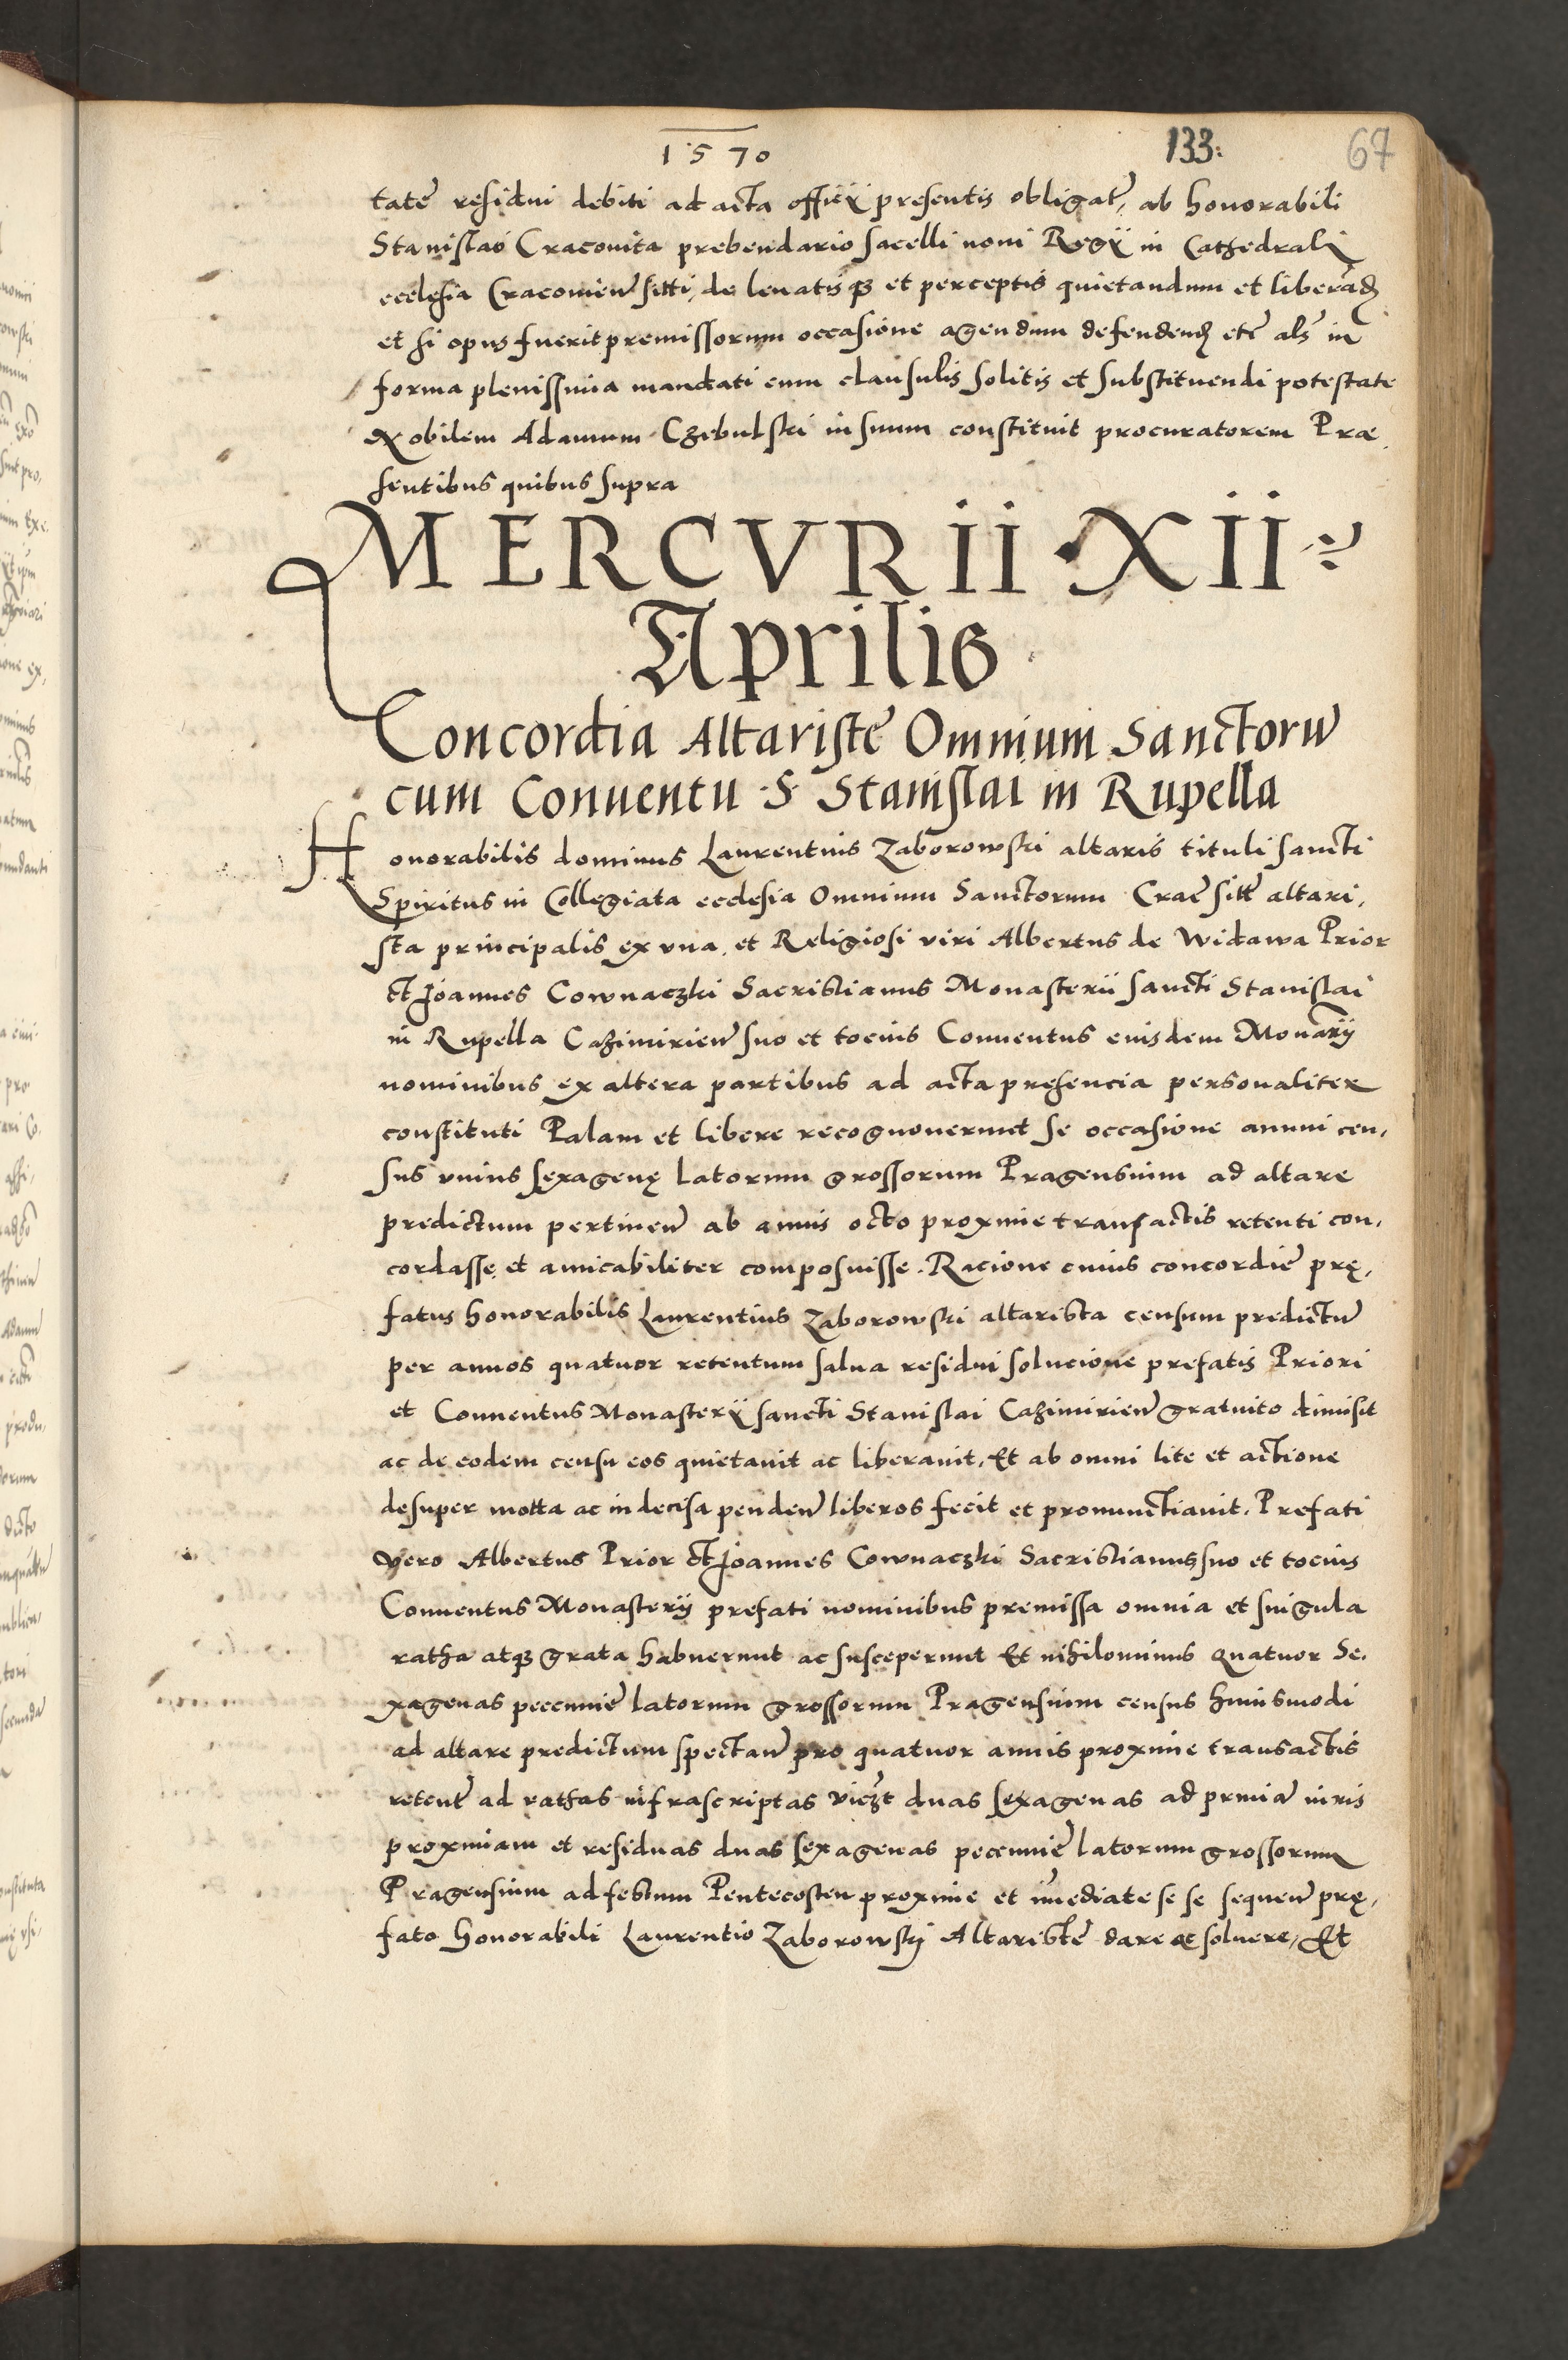 1570
133.
67
tatē residui debiti ad acta officij presentis obligat̄, ab honorabili
Stanislao Cracovita prebendario sacelli noui Regij in Cathedrali
ecclesia Cracouien̄ sitti, de leuatisqꝫ et perceptis quietandum et liberād̄
et si opus fuerit premissorum occasione agendum defendend̄ etc̄ als̄ in
forma plenissima mandati cum clausulis solitis et substituendi potestate
Nobilem Adamum Czebulski in suum constituit procuratorem Præ,
sentibus quibus supra
MERCVRII XII
Aprilis
Concordia Altaristē Omnium Sanctorū
cum Conuentu S. Stanislai in Rupella
Honorabilis dominus Laurentius Zaborowski altaris tituli sancti
Spiritus in Collegiata ecclesia Omnium Sanctorum Crac̄ sitt̄ altari,
sta principalis ex vna, et Religiosi viri Albertus de Widawa Prior
et Joannes Cownaczki Sacristianus Monasterii sancti Stanislai
in Rupella Cazimirien̄ suo et tocius Conuentus eiusdem Monarij
nominibus ex altera partibus ad acta presencia personaliter
constituti Palam et libere recognouerunt se occasione annui cen,
sus vnius sexagenę latorum grossorum Pragensium ad altare
predictum pertinen̄ ab annis octo proxime transactis retenti con,
cordasse et amicabiliter composuisse. Racione cuius concordiē prę,
fatus honorabilis Laurentius Zaborowski altarista censum predictū
per annos quatuor retentum salua residui solucione prefatis Priori
et Conuentus Monasterij sancti Stanislai Cazimirien̄ gratuito dimisit
ac de eodem censu eos quietauit ac liberauit, Et ab omni lite et actione
desuper motta ac indecisa penden̄ liberos fecit et pronunctiauit. Prefati
vero Albertus Prior et Joannes Cownaczki Sacristianus suo et tocius
Conuentus Monasterij prefati nominibus premissa omnia et singula
ratha atqꝫ grata habuerunt ac susceperunt Et nihilominus quatuor Se,
xagenas peccuniē latorum grossorum Pragensium census huiusmodi
ad altare predictum spectan̄ pro quatuor annis proxime transactis
retent̄ ad rathas infrascriptas viczt duas sexagenas ad prmiā iuris
proximam et residuas duas sexagenas peccuniē latorum grossorum
Pragensium ad festum Pentecosten proxime et īmediate se se sequen̄ prę,
fato honorabili Laurentio Zaborowskij Altaristē dare ac soluere, Et